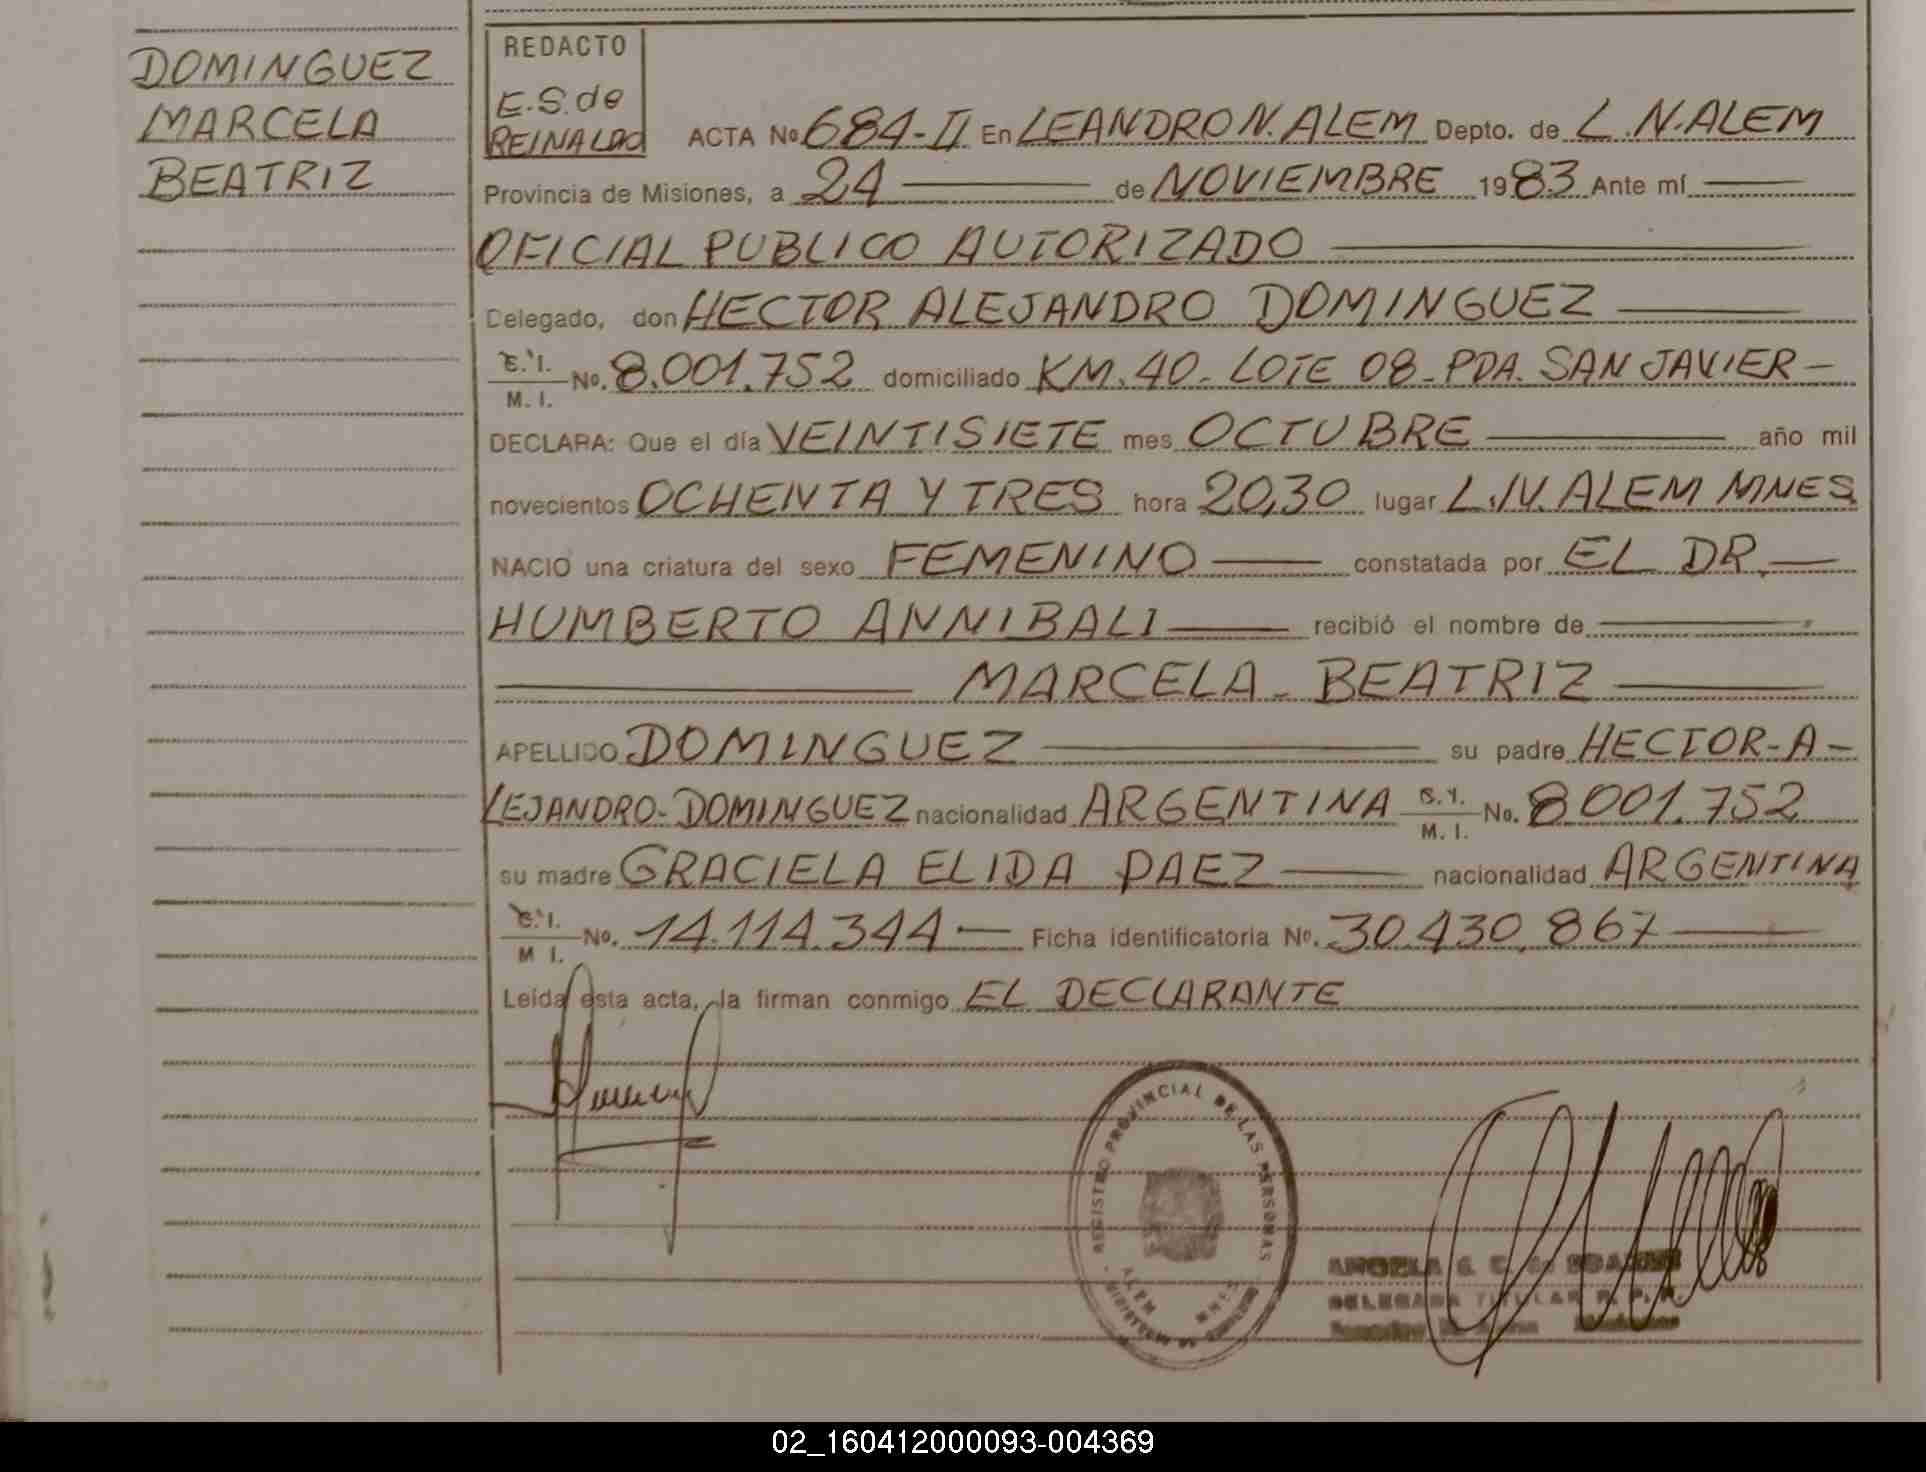 DOMINGUEZ
MARCELA
BEATRIZ
REDACTO
E.S. de
REINALDO
ACTA No 684-II En LEANDRO N. ALEM Depto. de L.N. ALEM
Provincia de Misiones, a 24 de NOVIEMBRE 1983 Ante mí
OFICIAL PUBLICO AUTORIZADO
Delegado, don HECTOR ALEJANDRO DOMINGUEZ
C.I. M. I. No. 8.001.752 domiciliado KM. 40- LOTE 08- PDA. SAN JAVIER-
DECLARA: Que el día VEINTISIETE mes OCTUBRE año mil
novecientos OCHENTA Y TRES hora 20,30 lugar L.N. ALEM MNES
NACIO una criatura del sexo FEMENINO constatada por EL DR.
HUMBERTO ANNIBALI recibió el nombre de
MARCELA - BEATRIZ
APELLIDO DOMINGUEZ su padre HECTOR-A-
LEJANDRO-DOMINGUEZ nacionalidad ARGENTINA C.I. M. I. No. 8001.752
su madre GRACIELA ELIDA PAEZ nacionalidad ARGENTINA
C.I. M I. No. 14.114.344 Ficha identificatoria No. 30.430.867
Leída esta acta, la firman conmigo EL DECLARANTE
REGISTRO PROVINCIAL DE LAS PERSONAS
ALEM MNES
ANGELA G. C. de
DELEGADA TITULAR R. P. P.
02_160412000093-004369